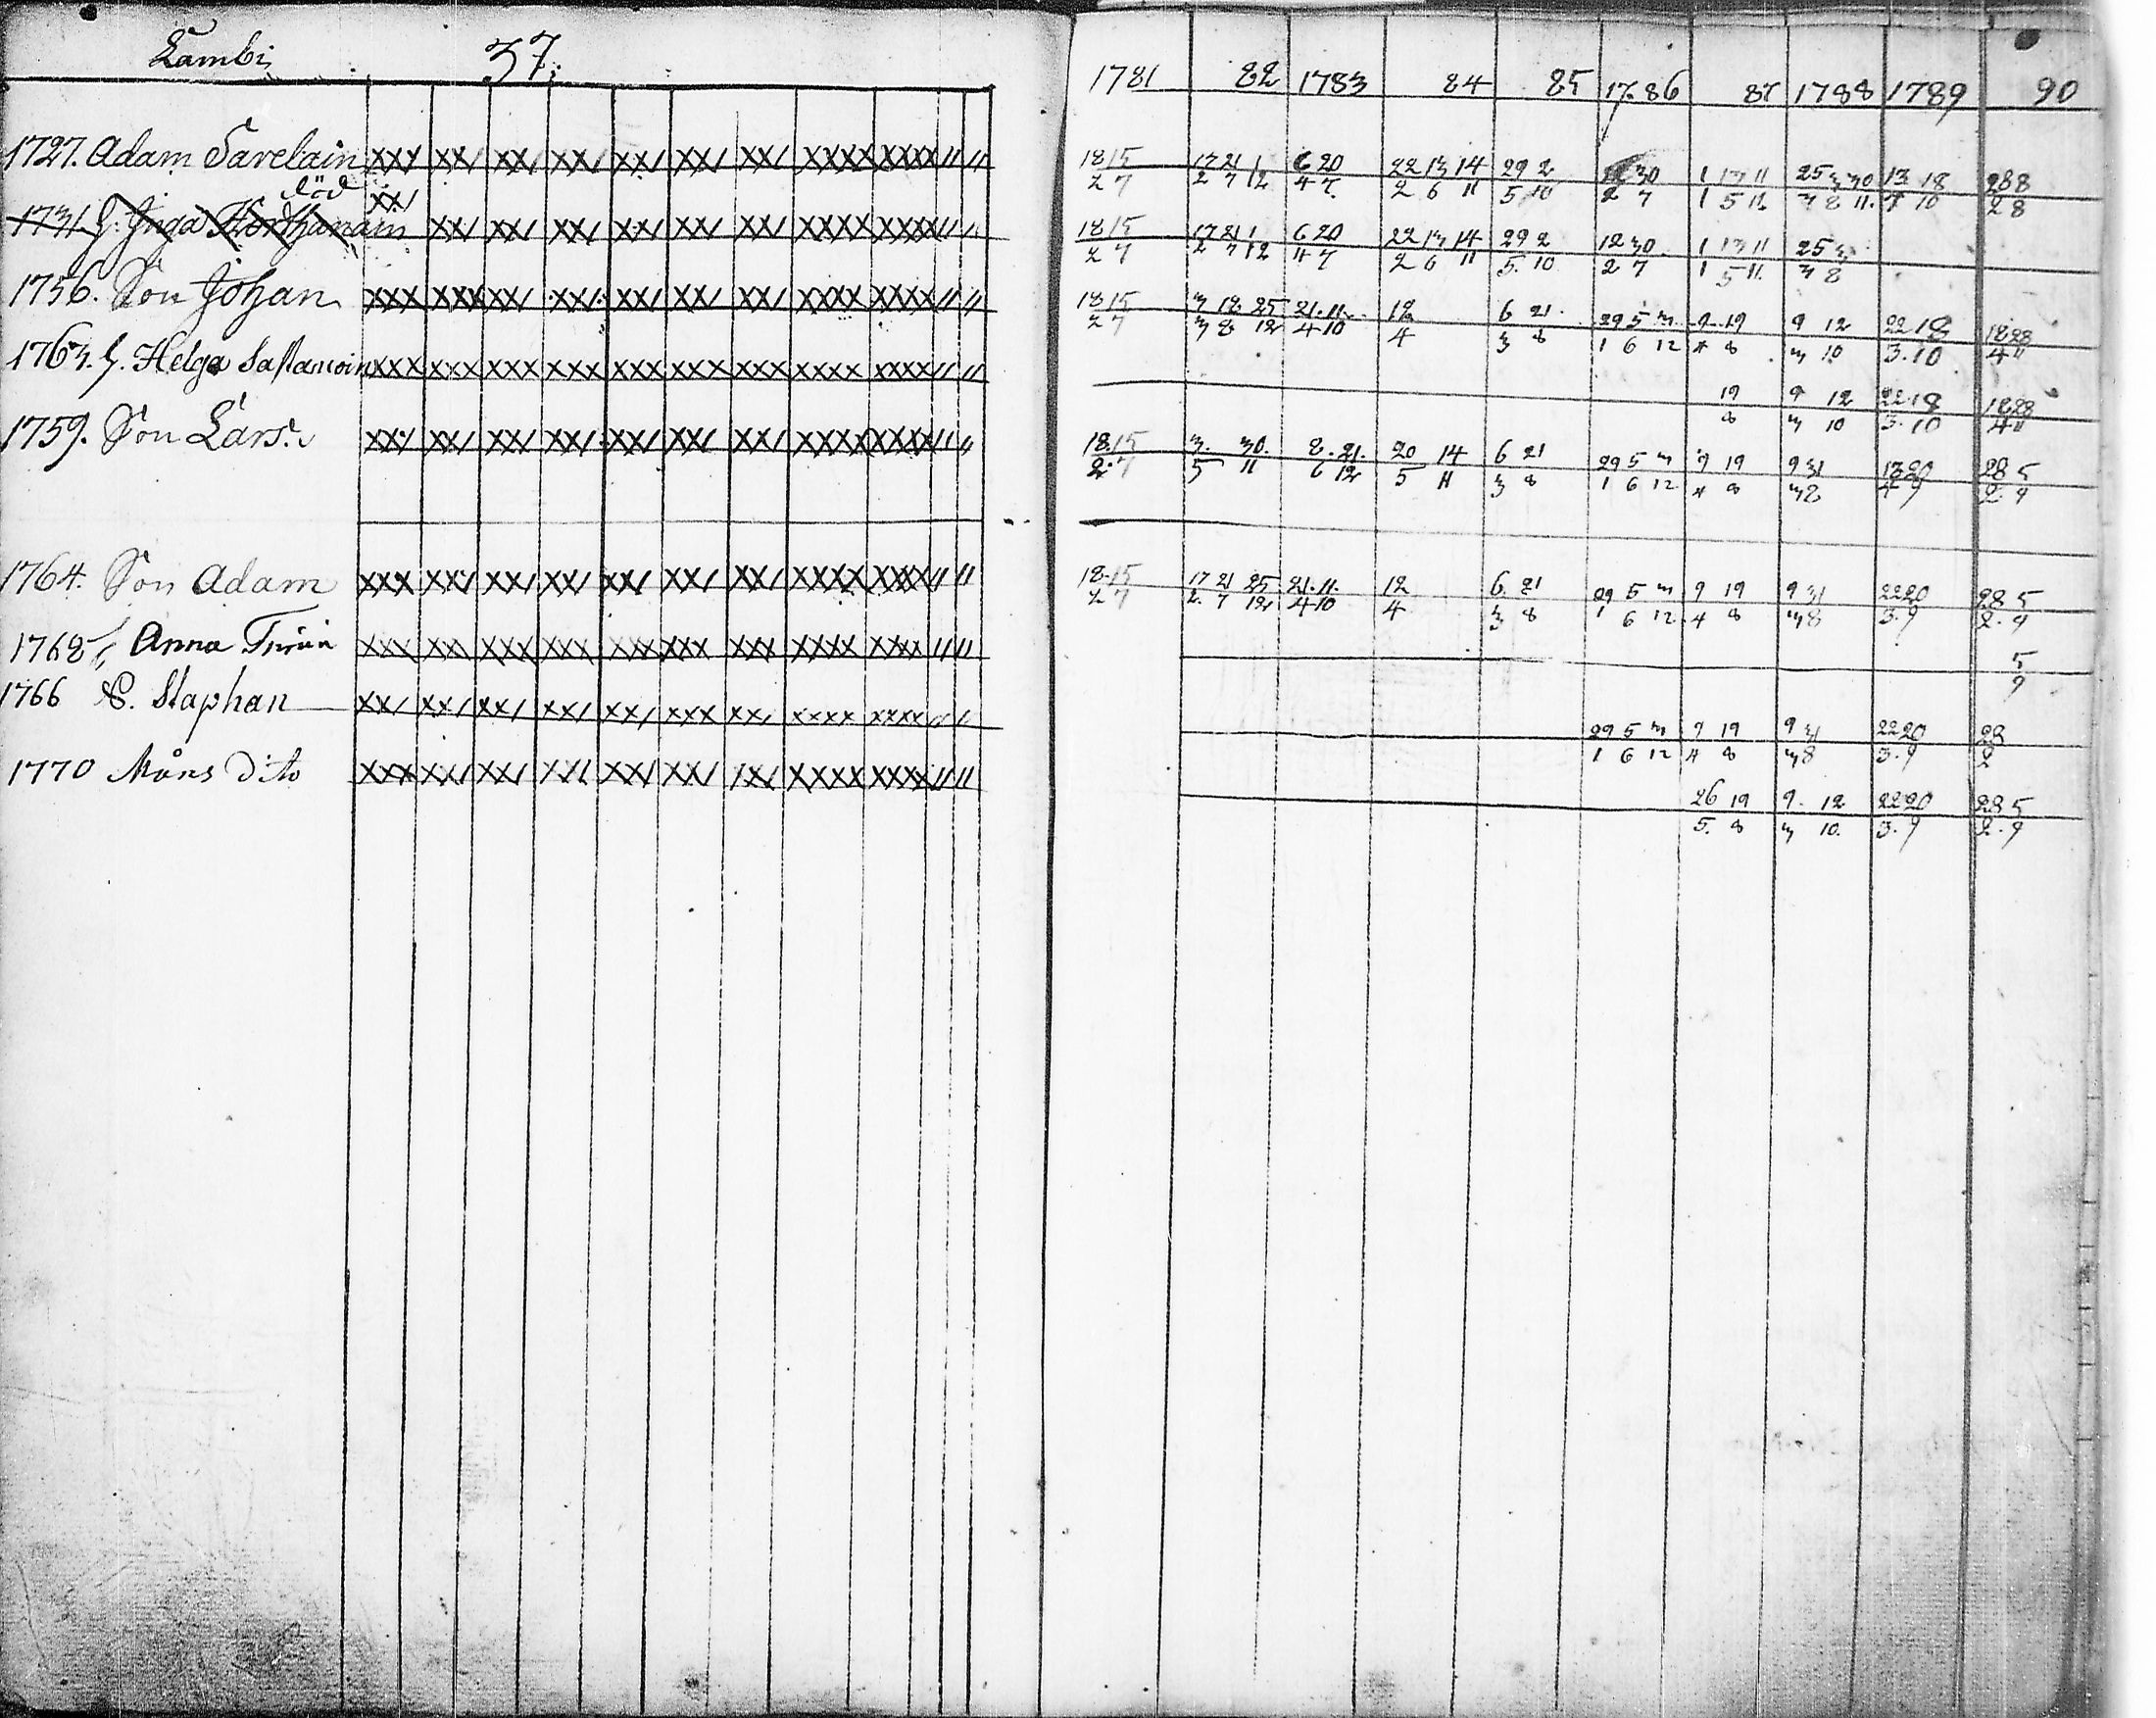 Lambi 37.
1781 82 1783 84 85 1786 87 1788 1789 90
1727. Adam Savelain xxx xx/ xx/ xx/ xx/ xx/ xx/ xxxx xxxx // //
18 15 17 21 1 6 20 22 13 14 29 2 30 1 13 11 25 3 30 13 18 28 8
2 7 2 7 12 4 7. 2 6 11 5 10 2 7 1 5 11. 3 8 11. 4 10 2 8
död xx/
1731 h. Inga xx/ xx/ xx/ xx/ xx/ xx/ xxxx xxxx // //
18 15 17 21 1 6 20 22 13 14 29 2 12 30 1 13 11 25 3
2 7 2 7 12 4 7 2 6 11 5. 10 2 7 1 5 11. 3 8
1756. Son Johan xxx xxx xx/ xx/ xx/ xx/ xx/ xxxx xxxx // //
18 15 3 18. 25 21. 11. 12 6 21. 29 5 3 9 19 9 12 22 18 18 28
2 7 3 8 12 4 10 4 3 8 1 6 12 4 8 3 10 3. 10 4 11
1763. h. Helga xxx xxx xxx xxx xxx xxx xxx xxxx xxxx // //
19 9 12 22 18 18 28
8 3 10 3. 10 4 11
1759. Son Lars. xx/ xx/ xx/ xx/ xx/ xx/ xx/ xxxx xxxx // //
18. 15 3. 30. 8. 21. 20 14 6 21 29 5 3 9 19 9 31 13 20 28 5
2. 7 5 11 6 12 5 11 3 8 1 6 12 4 8 3 8 4 9 2. 9
1764. Son Adam xxx xx/ xx/ xx/ xx/ xx/ xx/ xxxx xxxx // //
18 15 17 21 25 21. 11. 12 6. 21 29 5 3 9 19 9 31 22 20 28 5
2 7 2. 7 12 4 10 4 3 8 1 6 12 4 8 3 8 3. 9 2. 9
1768 h. Anna xxx xxx xxx xxx xxx xxx xxx xxxx xxxx // //
5
9
1766 S. Staphan xx/ xx/ xx/ xx/ xx/ xxx xx/ xxxx xxxx // //
29 5 3 9 19 9 31 22 20 28
1 6 12 4 8 3 8 3. 9 2
1770 Måns Dito xxx xx/ xx/ xx/ xx/ xx/ xx/ xxxx xxxx // //
26 19 9. 12 22 20 28 5
5. 8 3 10. 3. 9 2. 9